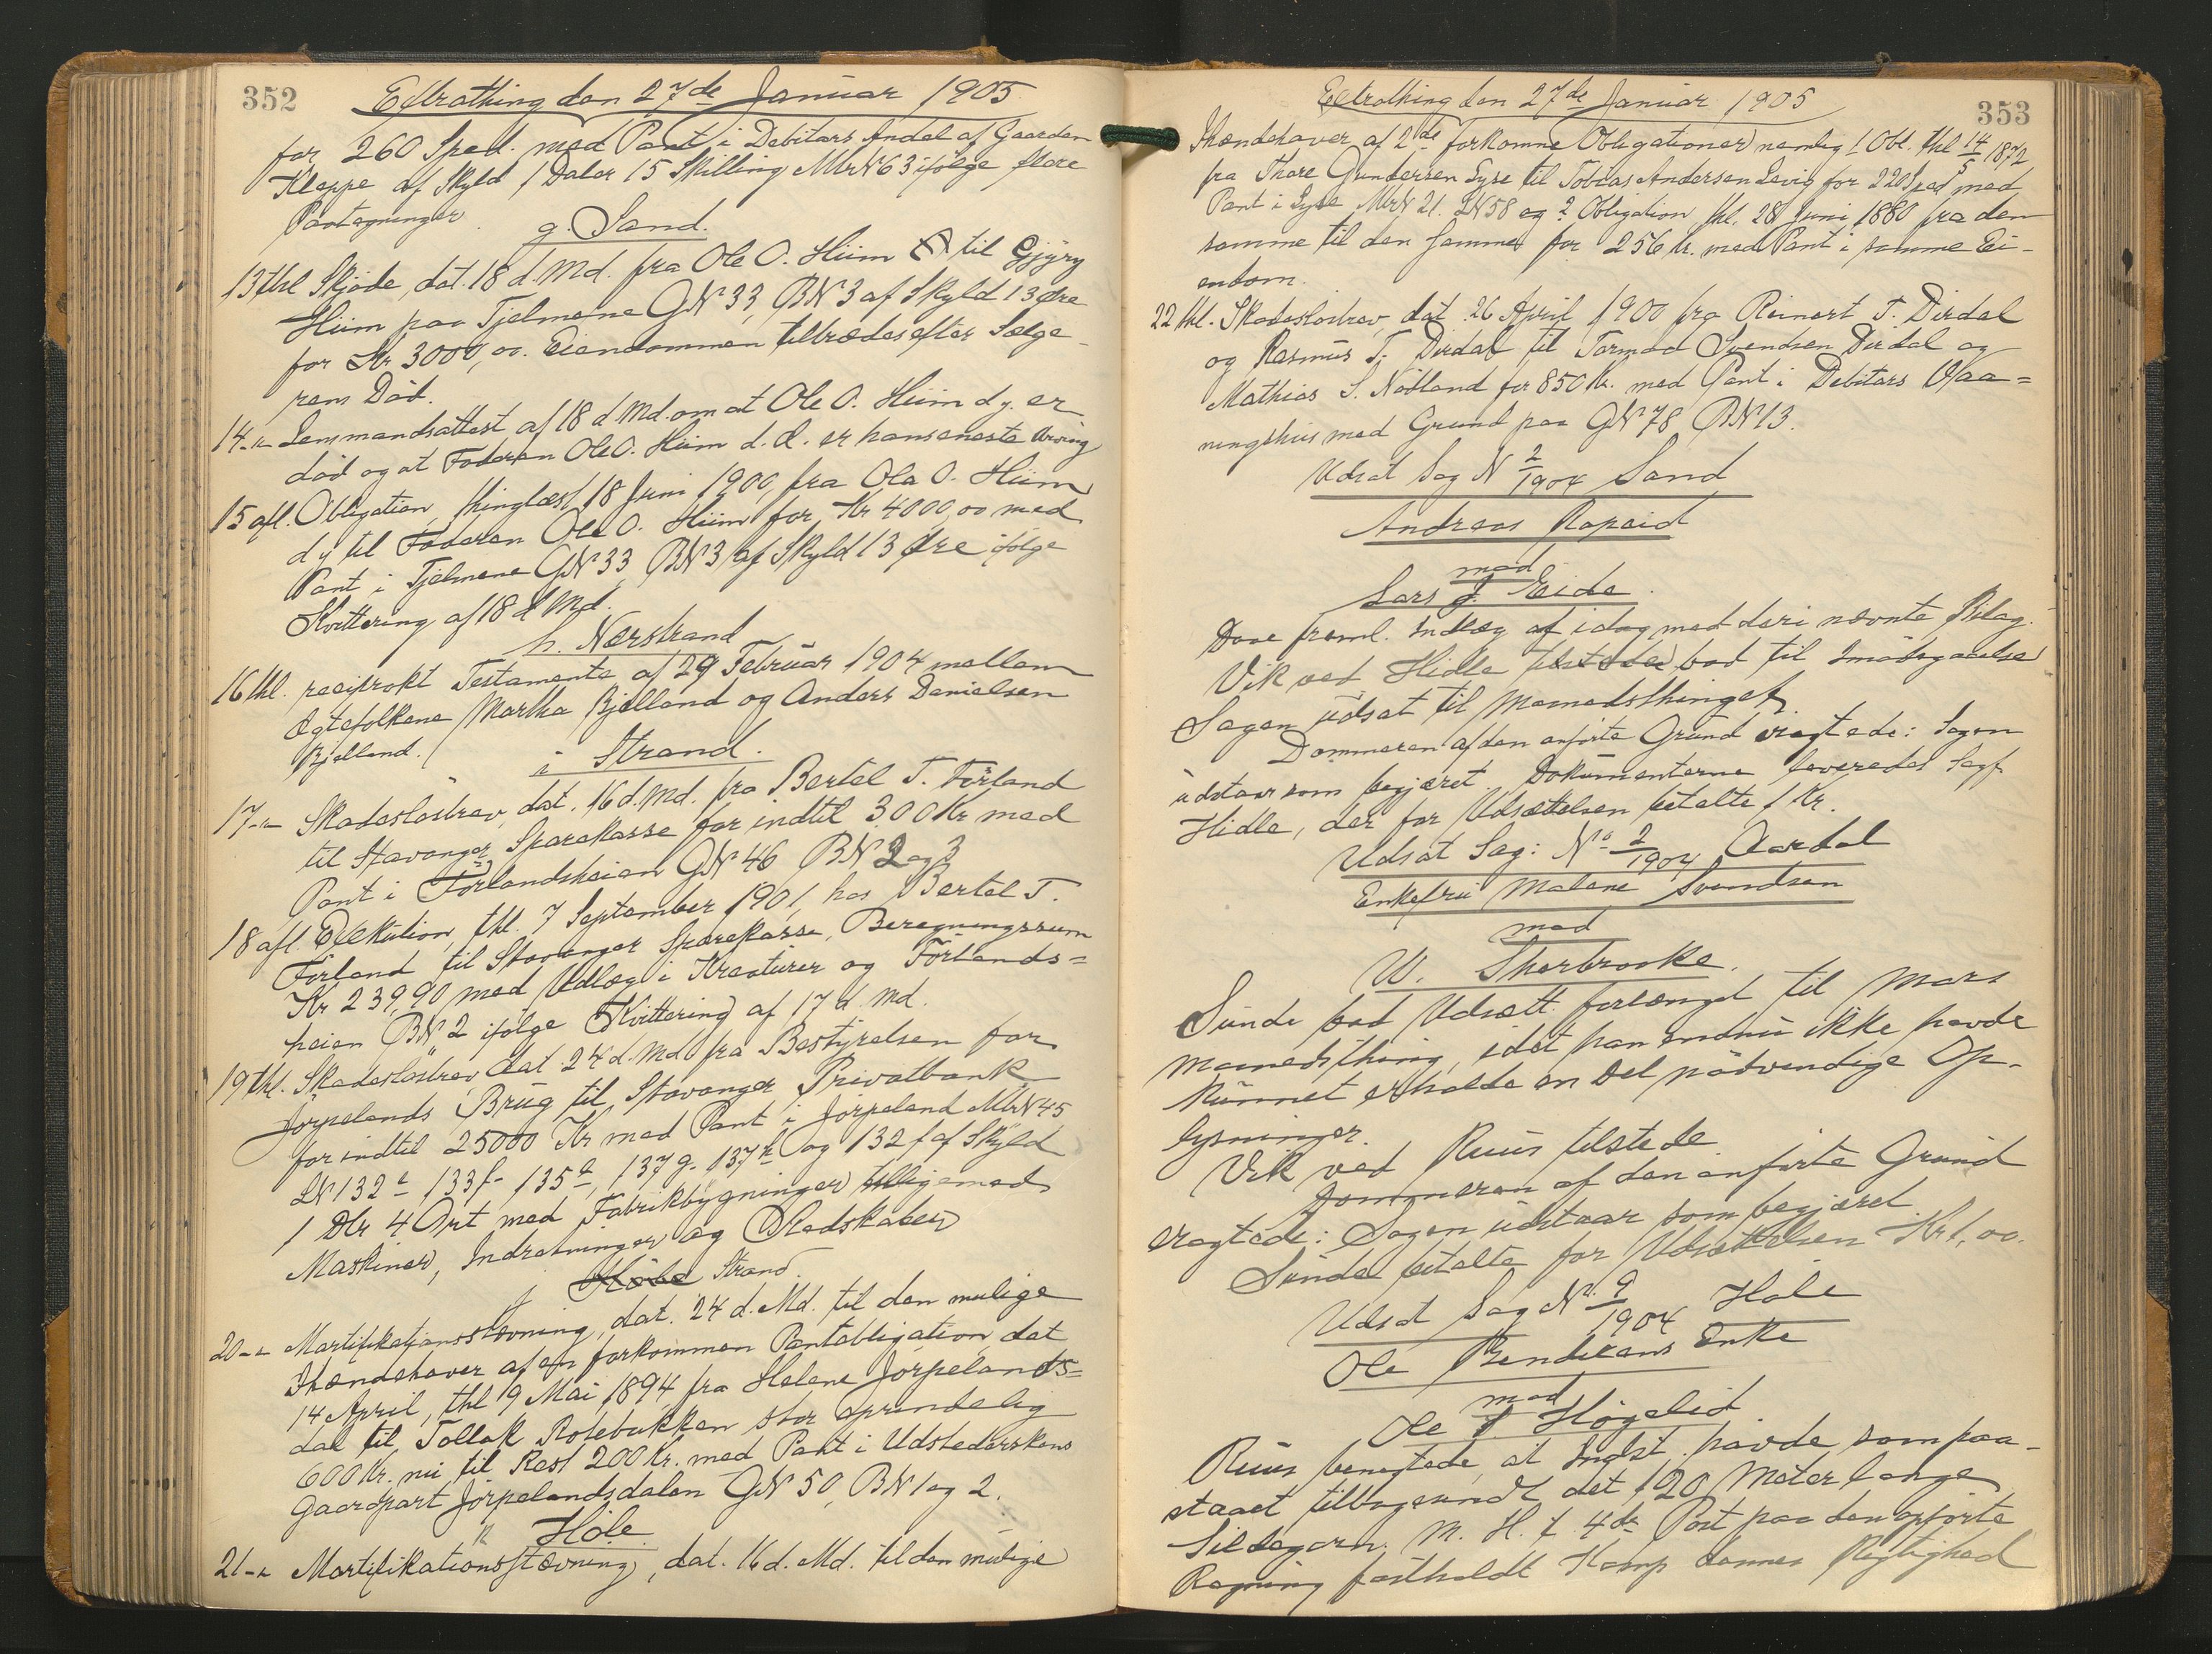 352
Extrathing den 27de Januar 1905
for 260 Sped. med Pant i Debitors Andel af Gaarden
Kleppe af Skyld 1 Daler 15 Skilling MtrN 63 ifølge flere
Paategninger.
g. Sand.
13 thl Skjøde, dat. 18 d. Md. fra Ole O. Hiim til Gjyry
Hiim paa Tjelmene GN 33, BN 3 af Skyld 13 Øre
for Kr. 3000,00. Eiendommen tiltrædes efter Sælge-
rens Død.
14-"- Lensmandsattest af 18 d Md. om at Ole O. Hiim d.y. er
død og at Faderen Ole O. Hiim d. æ. er hans eneste Arving
15 afl. Obligation, thinglæst 18 Juni 1900, fra Ole O. Hiim
d y til Faderen Ole O. Hiim for Kr 4000,00 med
Pant i Tjelmene GN 33 BN 3 af Skyld 13 Øre ifølge
Kvittering af 18 d Md.
h. Nærstrand
16 thl. reciprokt Testamente af 29 Februar 1904 mellem
Ægtefolkene Martha Bjelland og Anders Danielsen
Bjelland.
i Strand.
17-"- Skadesløsbrev, dat. 16 d. Md. fra Bertel T. Førland
til Stavanger Sparekasse for indtil 300 Kr med
Pant i Førlandsheien GN 46 BN 2 og 3
18 afl. Exekution, thl. 7 September 1901, hos Bertel T.
Førland til Stavanger Sparekasse, Beregningssum
Kr 239,90 med Udlæg i Kreaturer og Førlands=
heien BN 2 ifølge Kvittering af 17 d. Md.
19 thl. Skadesløsbrev, dat 24 d. Md. fra Bestyrelsen for
Jørpelands Brug til Stavanger Privatbank
for indtil 25000 Kr med Pant i Jørpeland MtrN 45
LN 132 e 133 f- 135 a, 137 g- 137 h og 132 f af Skyld
1 Dlr 4 Ort med Fabrikbygninger tilligemed
Maskiner, Indretninger og Redskaber
j Høle Strand
20-"- Mortifikationsstævning, dat. 24 d. Md. til den mulige
Ihændehaver af en forkommen Pantobligation, dat
14 April, thl 19 Mai 1894, fra Helene Jørpelands=
dal til Tollak Botsbakken stor oprindelig
600 Kr. nu til Rest 200 Kr. med Pant i Udstederskens
Gaardpart Jørpelandsdalen GN 50, BN 1 og 2.
k Høle
21-"- Mortifikationsstævning, dat. 16 d. Md. til den mulige
353
Extrathing den 27de Januar 1905
Ihændehaver af 2de forkomne Obligationer nemlig 1 Obl. thl 14/5 1872
fra Thore Gundersen Lyse til Tobias Andersen Levig for 220 Sped med
Pant i Lyse MtrN 21. LN 58 og 2 Obligation, thl. 28 Juni 1880 fra den
samme til den samme for 256 Kr. med Pant i samme Ei-
endom.
22 thl. Skadesløsbrev, dat 26 April 1900 fra Reinert T. Dirdal
og Rasmus T. Dirdal til Tormod Svendsen Dirdal og
Mathias S. Nødland for 850 Kr. med Pant i Debitors Vaa=
ningshus med Grund paa GN 78 BN 13.
Udsat Sag N 2/1904 Sand
Andreas Ropeid
mod
Lars J. Eide.
Dove freml. Indlæg af idag med deri nævnte Bilag.
Vik ved Hidle tilstede bad til Imødegaaelse
Sagen udsat til Maanedsthinget.
Dommeren af den anførte Grund eragtede: Sagen
udstaar som begjæret. Dokumenterne leveredes Sagf
Hidle, der for Udsættelsen betalte 1 Kr.
Udsat Sag: No 2/1904 Aardal
Enkefru Malene Svendsen
mod
W. Sherbrooke.
Sunde bad Udsætt. forlænget til Mars
Maanedsthing, idet han endnu ikke havde
kunnet erholde en Del nødvendige Op-
lysninger.
Vik ved Ruus tilstede.
Dommeren af den anførte Grund
eragtede: Sagen udstaar som begjæret
Sunde betalte for Udsættelsen Kr 1,00.
Udsat Sag No 9/1904 Høle
Ole Bendixens Enke
mod
Ole J Høgelid
Ruus benegtede, at Indst. havde, som paa-
staaet tilbagesendt det 120 Meter lange
Sildegarn. M. H. t. 4de Post paa den opførte
Regning fastholdt Komp dennes Rigtighed